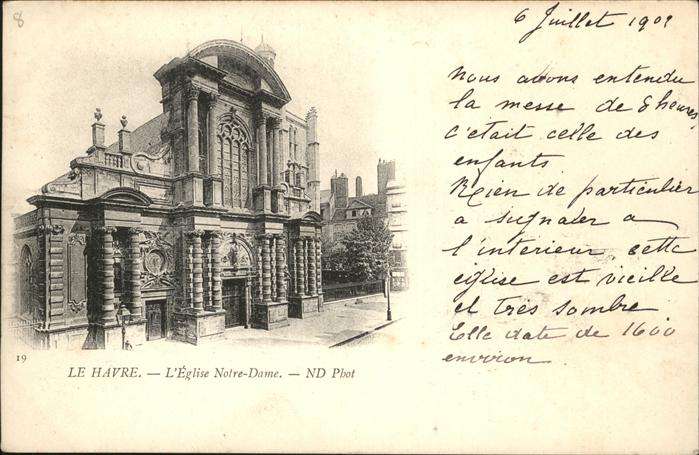 8
6 Juillet 1902
Nous avons entendu
la messe de 8 heures
c'était celle des
enfants
Rien de particulier
a signaler a
l'interieur cette
église est vieille
et très sombre
Elle date de 1600
environ
19
LE HAVRE. — L'Église Notre-Dame. — ND Phot